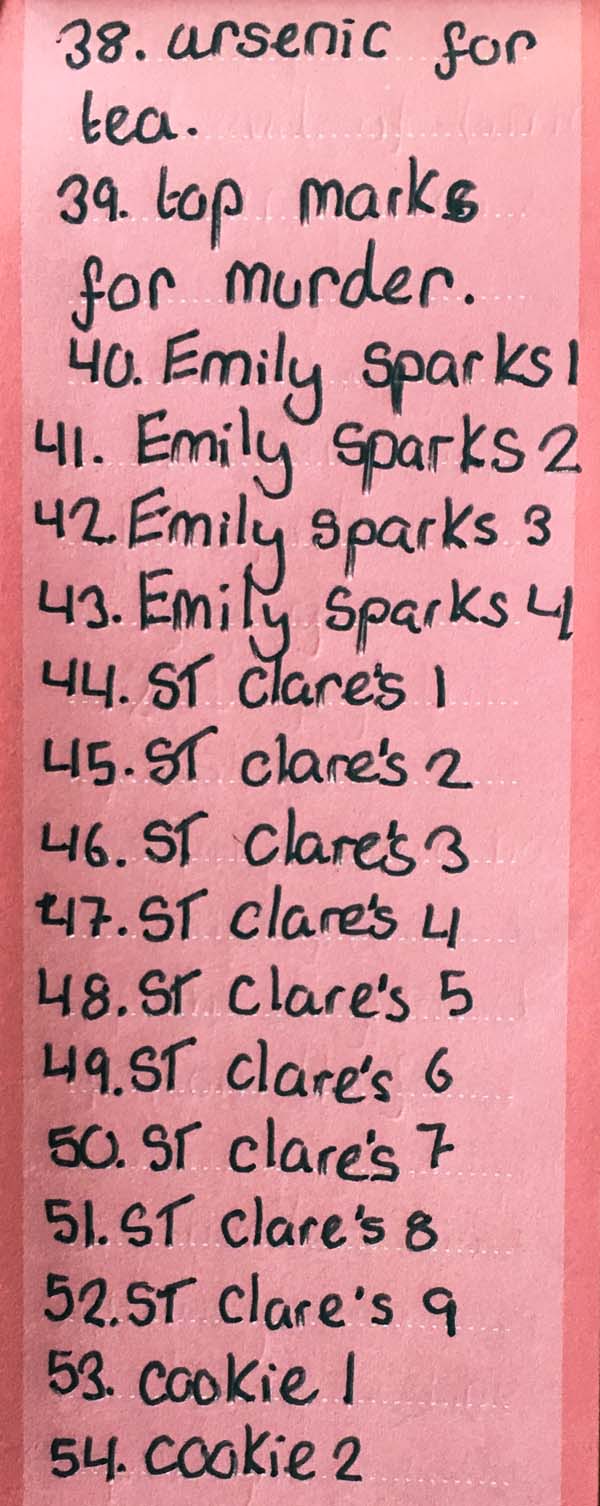 38. arsenic for
tea.
39. top marks
for murder.
40. Emily sparks 1
41. Emily sparks 2
42. Emily sparks 3
43. Emily sparks 4
44. ST clare's 1
45. ST clare's 2
46. ST clare's 3
47. ST clare's 4
48. ST clare's 5
49. ST clare's 6
50. ST clare's 7
51. ST clare's 8
52. ST clare's 9
53. cookie 1
54. cookie 2